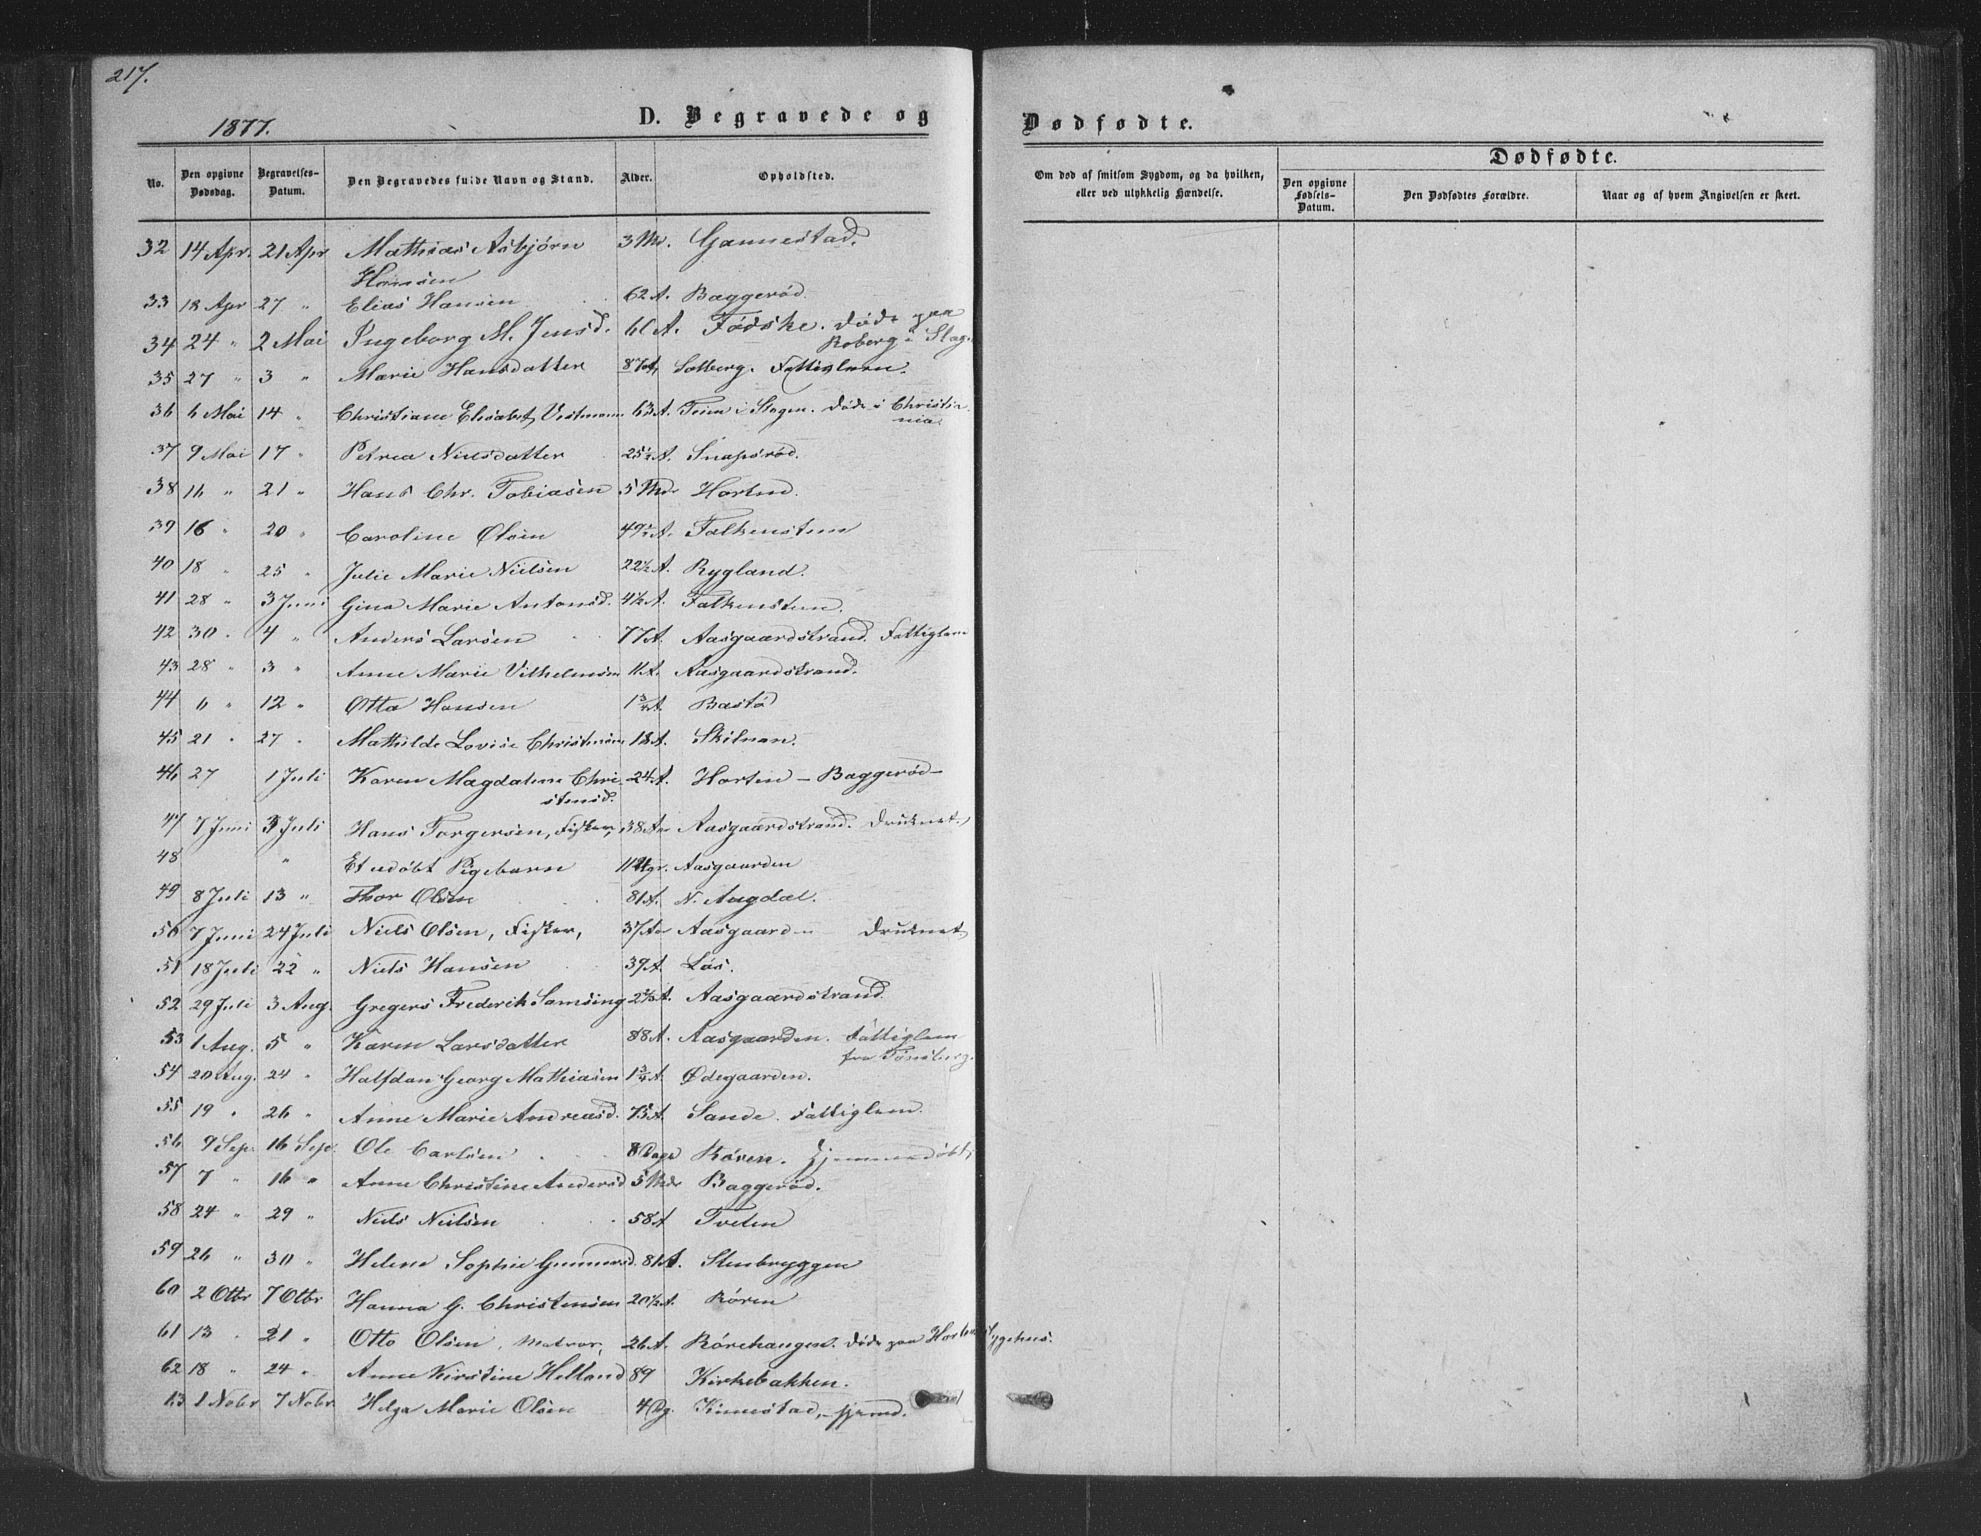 217.
1877.
D. Begravede og
Dødfødte.
No.
Den opgivne Dødsdag.
Begravelses-Datum.
Den Begravedes fulde Navn og Stand.
Alder.
Opholdsted.
Om død af smitsom Sygdom, og da hvilken, eller ved ulykkelig Hændelse.
Dødfødte.
Den opgivne Fødsels-Datum.
Den Dødfødtes Forældre.
Naar og af hvem Angivelsen er skeet.
32 14 Apr. 21 Apr Mathias Asbjørn 3 Md. Gannestad.
Hansen
33 18 Apr 27 " Elias Hansen 62 A. Baggerød.
34 24 " 2 Mai Ingeborg M. Jensd. 61 A. Fødske. Døde paa
Roberg i Slag.
35 27 " 3 " Marie Hansdatter Solberg. Fattiglem.
36 6 Mai 14 " Christiane Elisabet Vestmann 63 A. i Slagen. Døde i Christia-
nia.
37 9 Mai 17 " Petrea Nielsdatter 25½ A. Snapsrød.
38 16 " 21 " Hans Chr. Tobiasen 5 Mdr Horten.
39 16 " 20 " Caroline Olsen Falkensten
40 18 " 25 " Julie Marie Nielsen 22½ A. Rygland.
41 28 " 3 Juni Gina Marie Antonsd. 4½ A. Falkensten.
42 30 " 4 " Anders Larsen 77 A. Aasgaardstrand. Fattiglem
43 28 " 3 " Anne Marie Vilhelmsen 11 A. Aasgaardstrand.
44 6 " 12 " Otto Hansen 1¾ A. Bastø
45 21 " 27 " Mathilde Lovise Christensen 18 A.
46 27 1 Juli Karen Magdalene Chri- 24 A. Horten - Baggerød-
stensd.
47 7 Juni 3 Juli Hans Torgersen, Fisker, 38 Aar Aasgaardstrand. Druknet.
48 " Et udøbt Pigebarn Aasgaarden
49 8 Juli 13 " Thor Olsen 81 A. N. Augdal.
50 7 Juni 24 Juli Niels Olsen, Fisker, 37 Aar Aasgaard Druknet
51 18 Juli 22 " Niels Hansen 39 A. Løs.
52 29 Juli 3 Aug. Gregers Frederik Samsing Aasgaardstrand
53 1 Aug. 5 " Karen Larsdatter 88 A. Aasgaarden. Fattiglem
fra Tønsberg.
54 20 Aug. 24 " Halfdan Georg Mathiasen 1¾ A. Ødegaarden.
55 19 " 26 " Anne Marie Andreasd. 75 A. Sande. Fattiglem.
56 9 Sep. 16 Sep. Ole Carlsen 8 Dage Røren. Hjemmedøbt.
57 7 " 16 " Anne Christine Andersd 5 Mdr Baggerød.
58 24 " 29 " Niels Nielsen 58 A Tveten
59 26 " 30 " Helene Sophie Gunnersd. 81 A. Stenbryggen
60 2 Otbr 7 Otbr Hanna G. Christensen 20½ A. Røren
61 13 " 21 " Otto Olsen, Matros, 26 A. Rørehaugen. Døde paa Hortens Sygehus.
62 18 " 24 " Anne Kirstine Helland 89 Kirkebakken.
63 1 Nobr 7 Nobr. Helga Marie Olsen 4 Dg. Kinnestad,